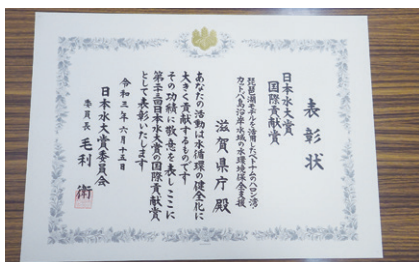 表彰状
日本水大賞
国際貢献賞
琵琶湖モデルを活用したベトナムハロン湾
カットバ島沿岸水域の水環境保全支援
滋賀県庁 殿
あなたの活動は水循環の健全化に
大きく貢献するものです
その功績に敬意を表しここに
第二十三回日本水大賞の国際貢献賞
として表彰いたします
令和三年六月十五日
日本水大賞委員会
委員長 毛利 衛